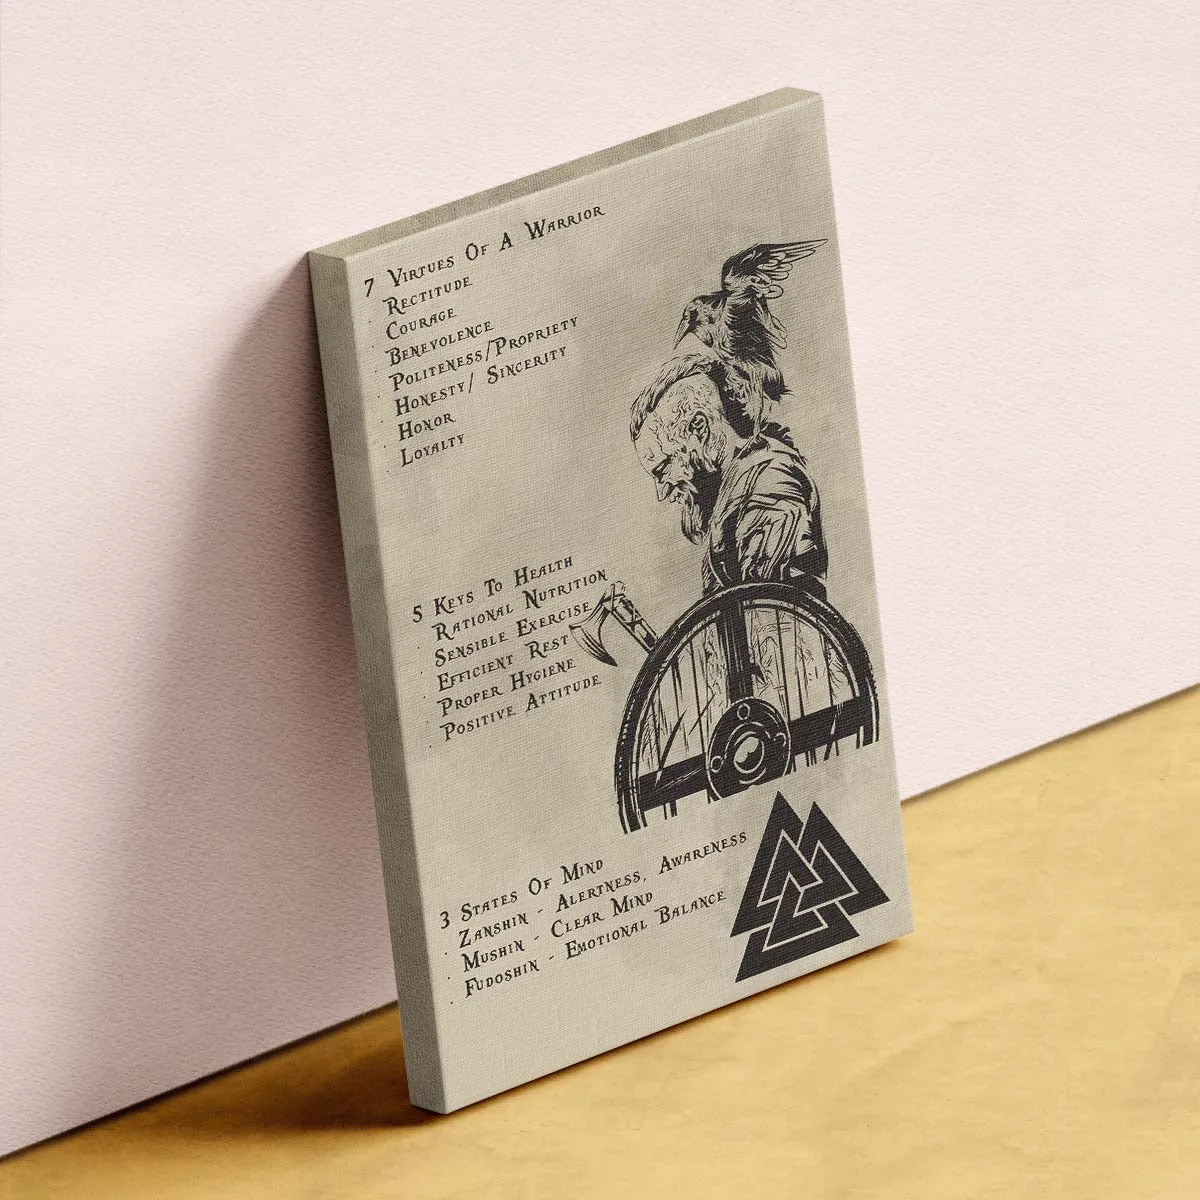 7 Virtues Of A Warrior
· Rectitude
· Courage
· Benevolence
· Politeness/Propriety
· Honesty/ Sincerity
· Honor
· Loyalty
5 Keys To Health
· Rational Nutrition
· Sensible Exercise
· Efficient Rest
· Proper Hygiene
· Positive Attitude
3 States Of Mind
· Zanshin - Alertness, Awareness
· Mushin - Clear Mind
· Fudoshin - Emotional Balance